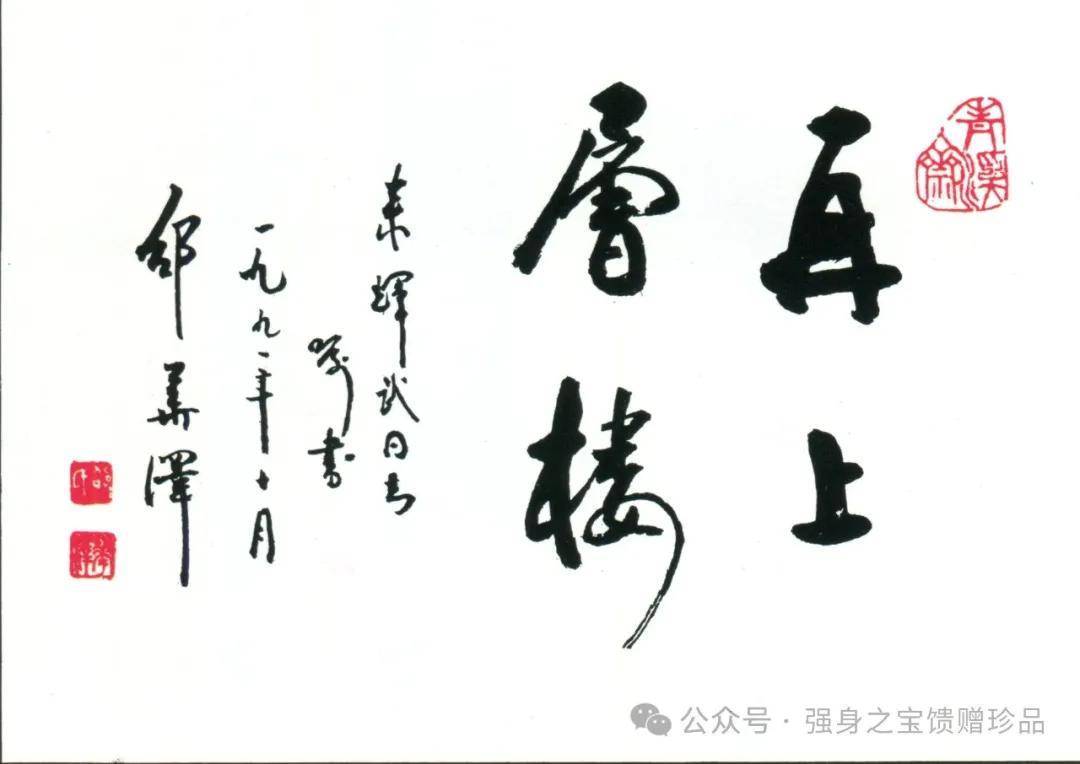 再上
層樓
来輝武同志
嘱書
一九九一年十月
邵華澤
公众号·强身之宝馈赠珍品